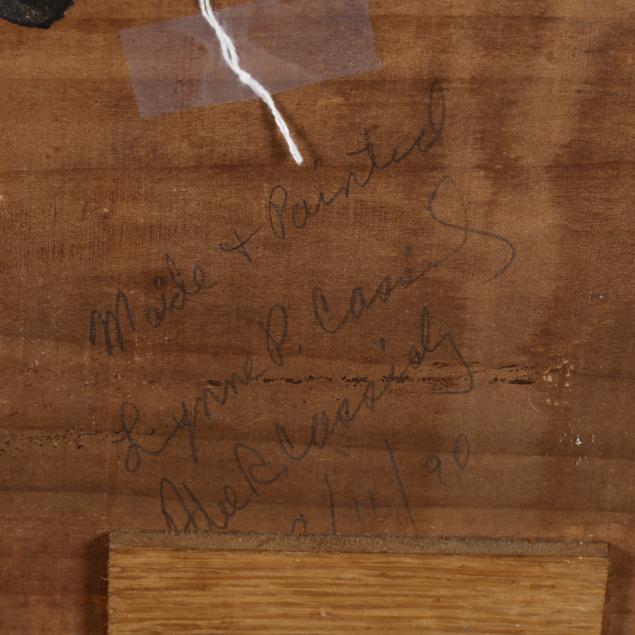 Made + Painted
Lynne P. Cassidy
R. Cassidy
/11/90